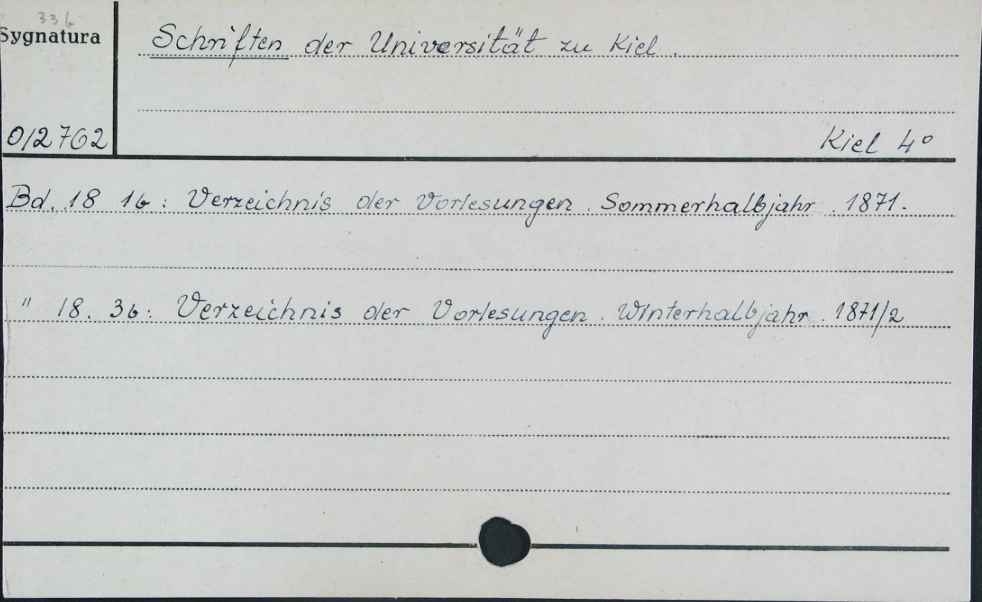 336
Sygnatura
Schriften der Universität zu Kiel.
0/2762
Kiel 4°
Bd. 18 1b: Verzeichnis der Vorlesungen. Sommerhalbjahr. 1871.
" 18. 3b: Verzeichnis der Vorlesungen. Winterhalbjahr. 1871/2